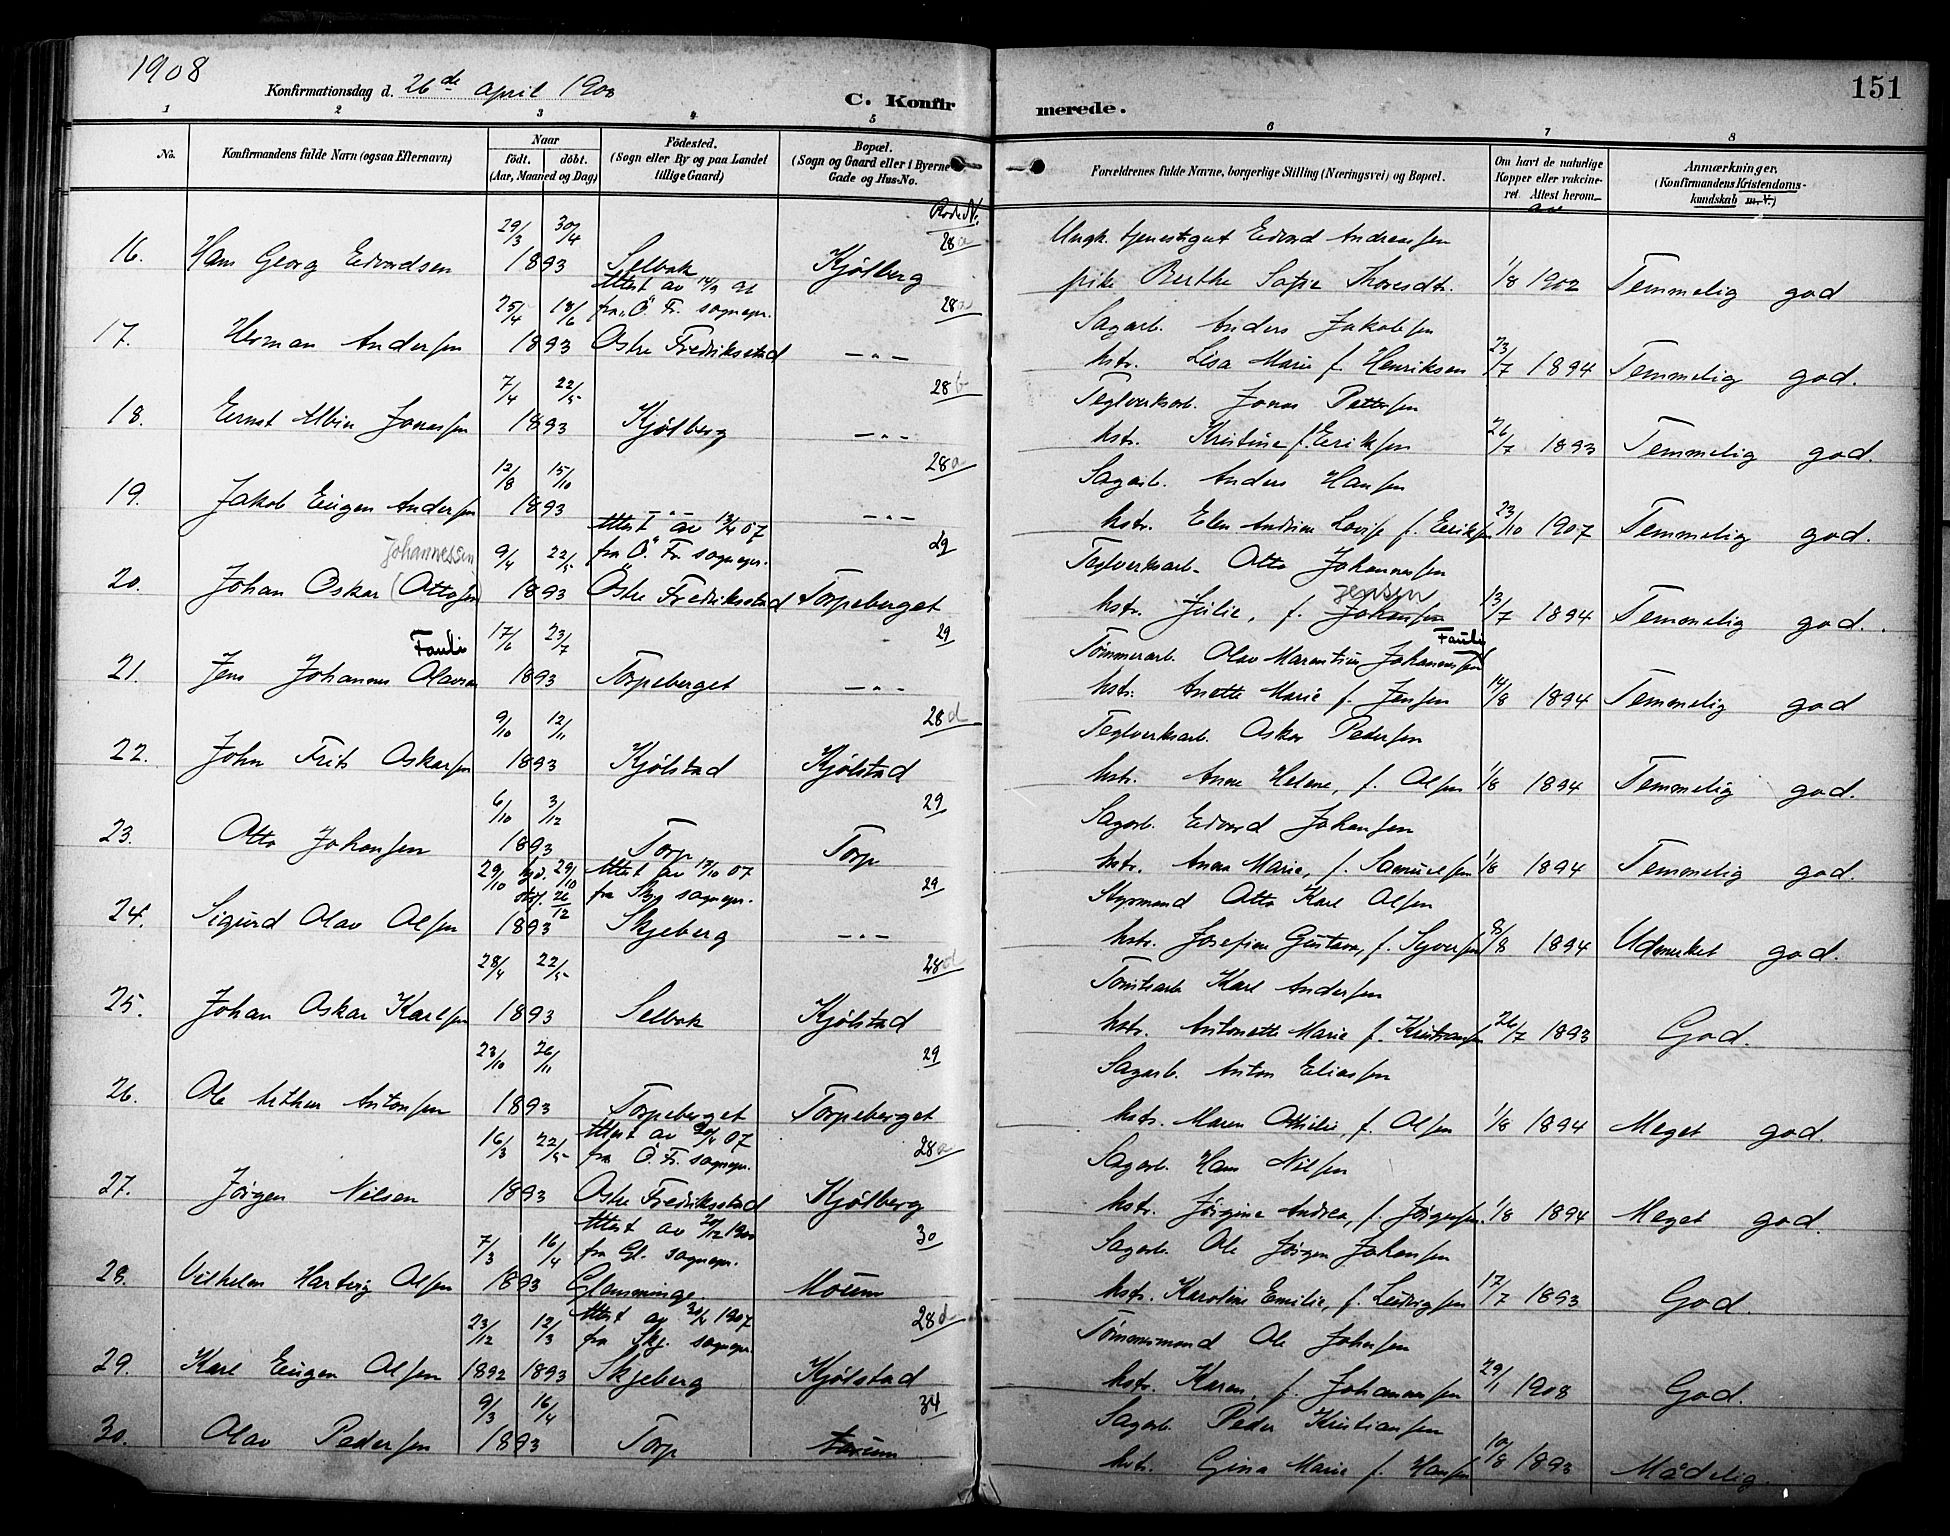 1908
Konfirmationsdag d. 26de april 1908
C. Konfirmerede.
151
1 2 3 4 5 6 7 8
No.
Konfirmandens fulde Navn (ogsaa Efternavn)
Naar
födt. döbt.
(Aar, Maaned og Dag)
Födested.
(Sogn eller By og paa Landet
tillige Gaard)
Bopæl.
(Sogn og Gaard eller i Byerne
Gade og Hus-No.
Forældrenes fulde Navne, borgerlige Stilling (Næringsvei) og Bopæl.
Om havt de naturlige
Kopper eller vakcine-
ret. Attest herom
Anmærkninger,
(Konfirmandens Kristendoms-
kundskab m. V.)
Rode No.
29/3 30/4 28a Ungk. tjenestegut Edvard Andreassen
16. Hans Georg Edvardsen 1893 Selbak Kjölberg pike Berthe Sofie Thoresdtr. 1/8 1902 Temmelig god
Attest av
25/4 18/6 fra Ö. Fr. sognepr. 28a Sagarb. Anders Jakobsen
17. Herman Andersen 1893 Östre Fredriksstad —„— hstr. Lisa Marie f. Henriksen 23/7 1894 Temmelig god.
7/4 22/5 28b Teglverksarb. Jonas Pettersen
18. Ernst Albin Jonassen 1893 Kjölberg —„— hstr. Kristine f. Eriksen 26/7 1893 Temmelig god.
12/8 15/10 28a Sagarb. Anders Hansen
19. Jakob Eugen Andersen 1893 —„— —„— hstr. Elen Andrine Lovise f. Eriksen 23/10 1907 Temmelig god.
Attest av 07
Johannessen 9/4 22/5 fra Ö. Fr. sognepr. 29 Teglverksarb. Otto Johannesen
20. Johan Oskar (Ottosen 1893 Östre Fredriksstad Torpeberget hstr. Julie, f. Johansen Jensen 13/7 1894 Temmelig god.
Fauli 17/6 23/7 29 Tömmerarb. Olav Marentius Johannessen Fauli
21. Jens Johannes Olavsen 1893 Torpeberget —„— hstr. Anette Marie f. Jensen 14/8 1894 Temmelig god
9/10 12/11 28d Teglverksarb. Oskar Pedersen
22. John Frits Oskarsen 1893 Kjölstad Kjölstad hstr. Anne Helene, f. Olsen 1/8 1894 Temmelig god.
6/10 3/12 29 Sagarb. Edvard Johansen
23. Otto Johansen 1893 Torp Torp hstr. Anna Marie, f. Samuelsen 1/8 1894 Temmelig god.
29/10 hjd. 29/10 Attest av 07
stf. 26/12 fra Skj. sognepr. 29 Styrmand Otto Karl Olsen
24. Sigurd Olav Olsen 1893 Skjeberg —„— hstr. Josefine Gustava, f. Syversen 8/8 1894 Udmerket god.
28/4 22/5 28d Tomtearb. Karl Andersen
25. Johan Oskar Karlsen 1893 Selbak Kjölstad hstr. Antonette Marie f. Kristiansen 26/7 1893 God.
23/10 26/11 29 Sagarb. Anton Eliassen
26. Ole Arthur Antonsen 1893 Torpeberget Torpeberget hstr. Maren Othilie, f. Olsen 1/8 1894 Meget god.
Attest av 07
16/3 22/5 fra Ö. Fr. sognepr. 28a Sagarb. Hans Nilsen
27. Jörgen Nilsen 1893 Östre Fredriksstad Kjölberg hstr. Jörgine Andrea, f. Jörgensen. 1/8 1894 Meget god.
Attest av
7/3 16/4 fra Gl. sognepr. 30 Sagarb. Ole Jörgen Johansen
28. Vilhelm Hartvig Olsen 1893 Glemminge. Moum hstr. Karoline Emilie, f. Ludvigsen 17/7 1893 God.
Attest av 1907
23/12 12/3 fra Skj. sognepr. 28d Tömmermand Ole Johnsen
29. Karl Eugen Olsen 1892 1893 Skjeberg Kjölstad hstr. Karen, f. Johannessen 29/1 1908 God.
9/3 16/4 34 Sagarb. Peder Kristiansen
30. Olav Pedersen 1893 Torp hstr. Gina Marie f. Hansen 10/8 1893 Mådelig.